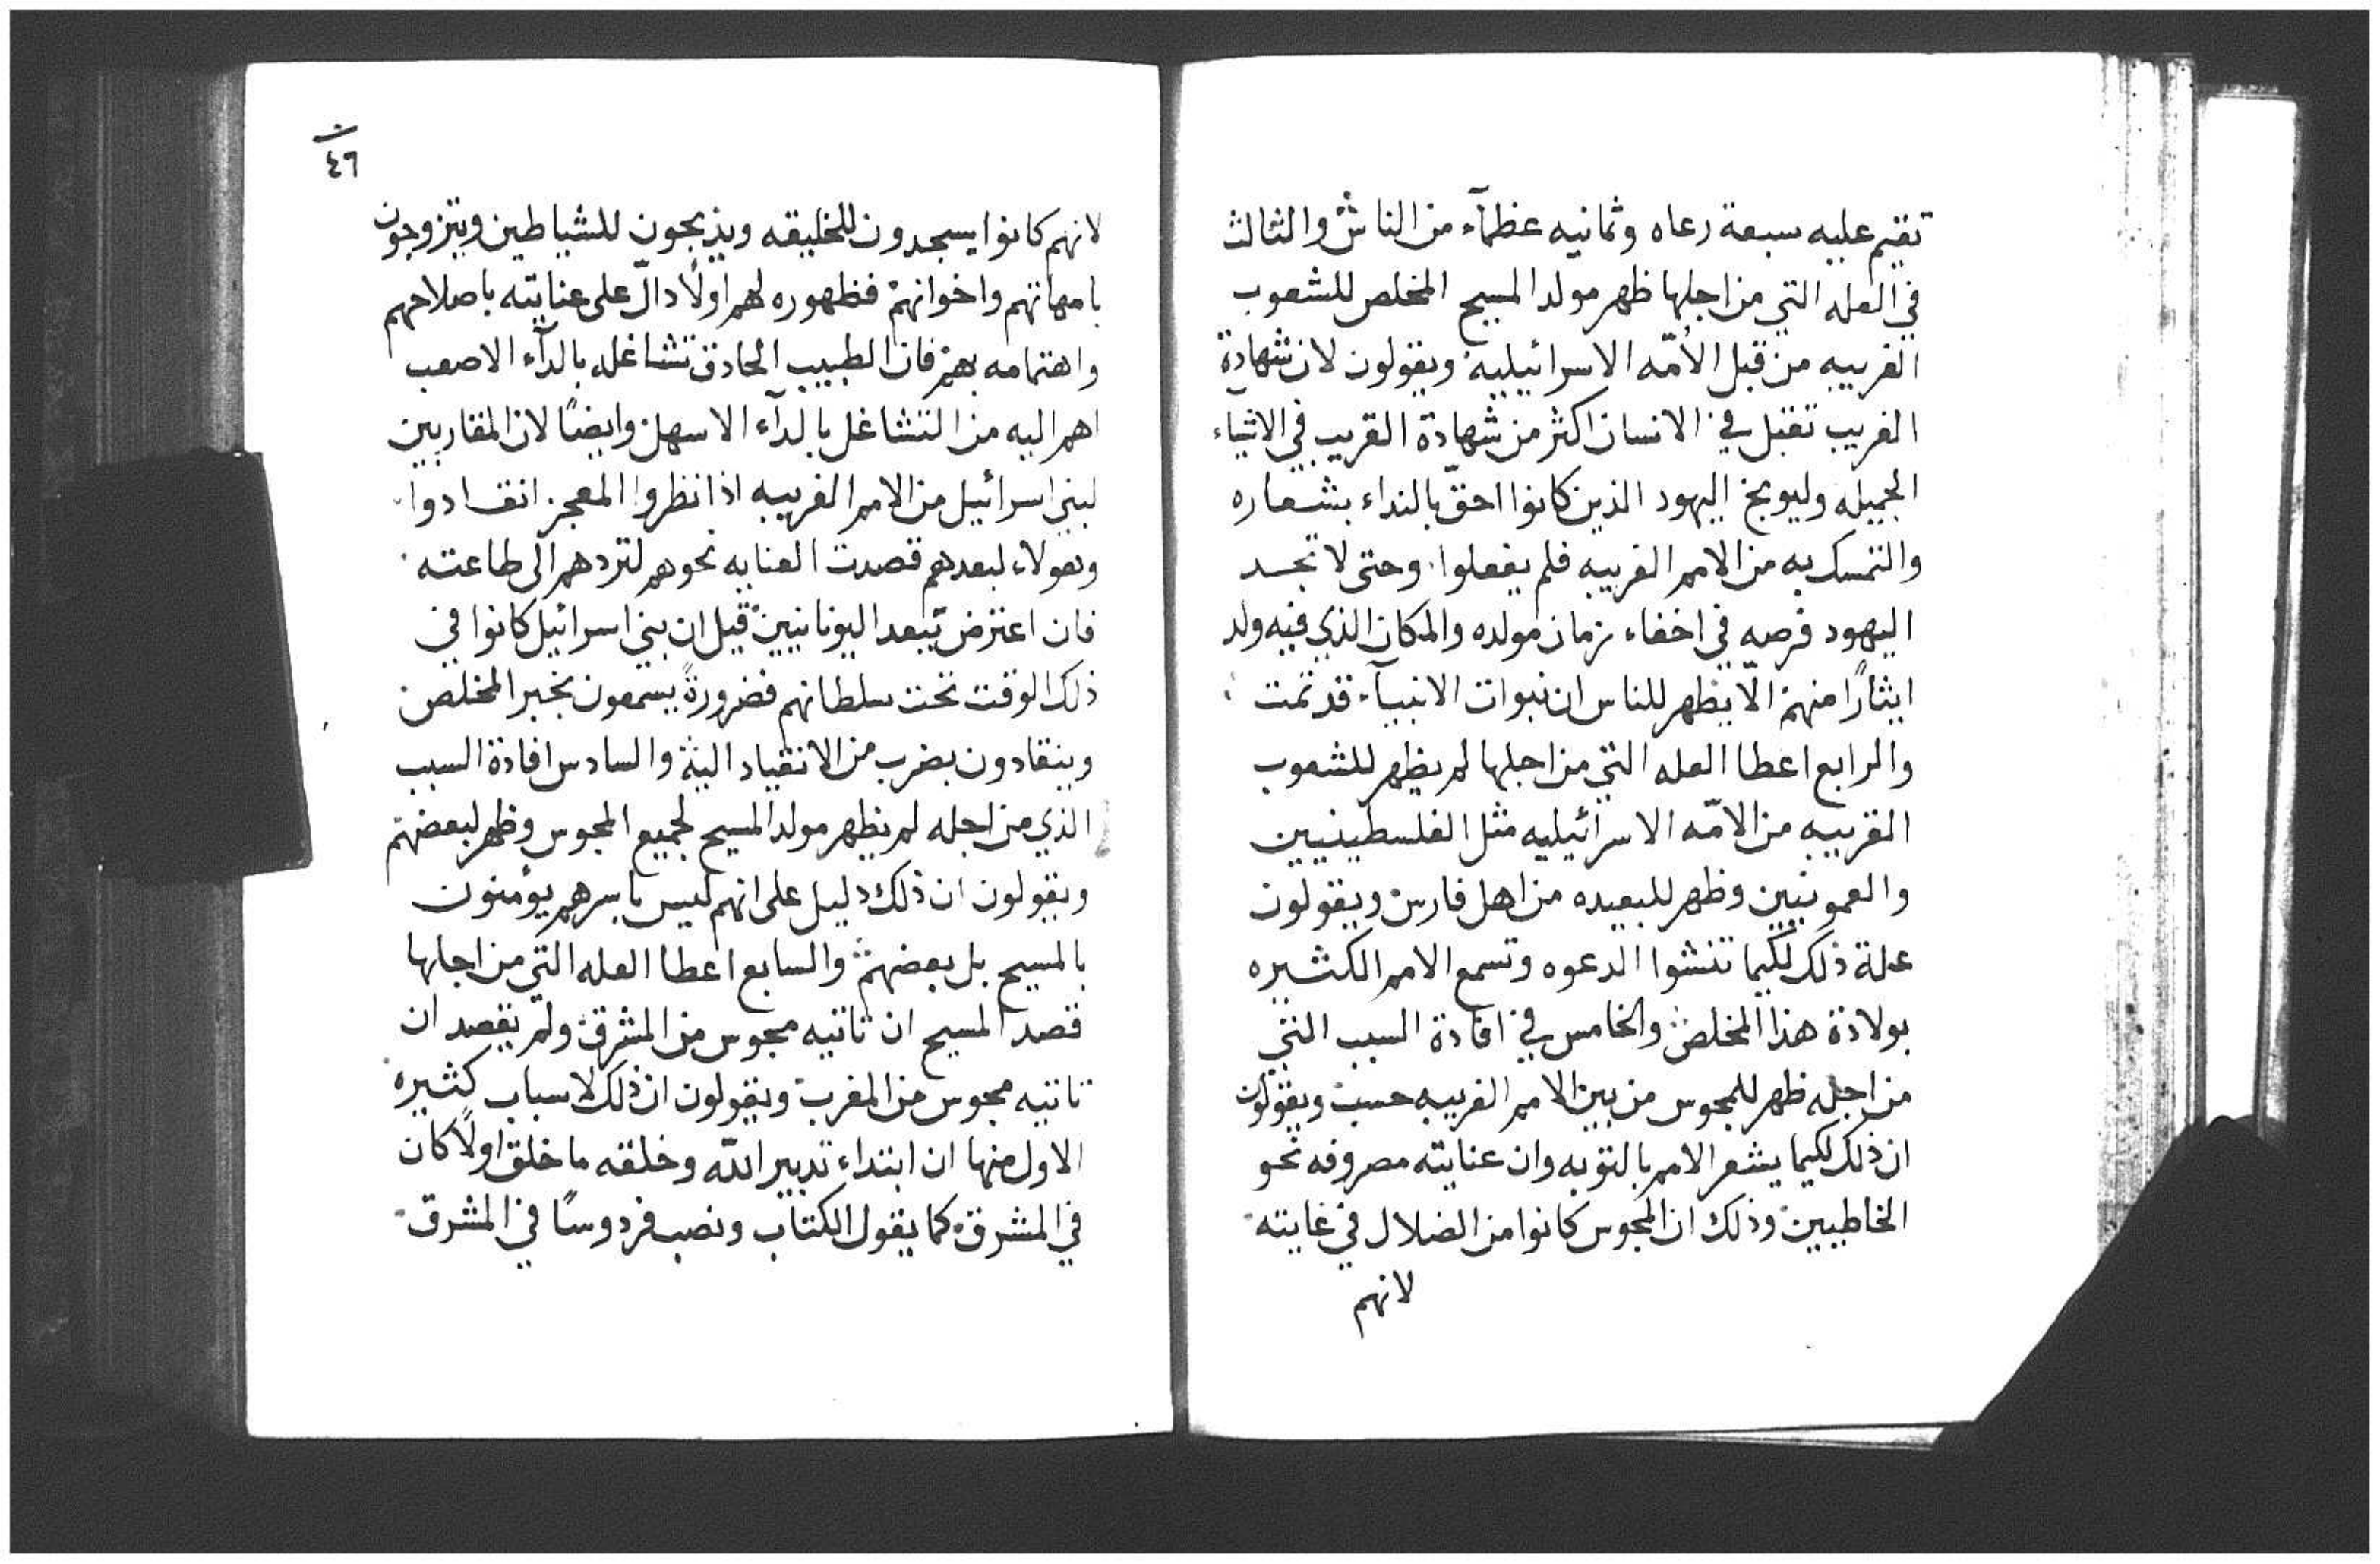 تقيم عليه سبعة رعاه وثمانيه عظمآء من الناس والثالث
في العله التي من اجلها ظهر مولد المسيح المخلص للشعوب
الغريبه من قبل الأمّه الاسرائيليه ويقولون لان شهادة
الغريب تقبل في الانسان اكثر من شهادة القريب في الاشياء
الجميله وليوبخ اليهود الذين كانوا احقّ بالنداء بشعاره
والتمسك به من الامم الغريبه فلم يفعلوا وحتى لا تجد
اليهود فرصه في اخفاء زمان مولده والمكان الذي فيه ولد
ايثارًا منهم الّا يظهر للناس ان نبوات الانبيآء قد تمت
والرابع اعطا العله التي من اجلها لم يظهر للشعوب
القريبه من الامّه الاسرائيليه مثل الفلسطينيين
والعمونيين وظهر للبعيده من اهل فارس ويقولون
علة ذلك لكيما تنشوا الدعوه وتسمع الامم الكثيره
بولادة هذا المخلص والخامس في افادة السبب التي
من اجله ظهر للمجوس من بين الامم الغريبه حسب ويقولون
ان ذلك لكيما يشعر الامم بالتوبه وان عنايته مصروفه نحو
الخاطيين وذلك ان المجوس كانوا من الضلال في غايته
لانهم
٤٦
لانهم كانوا يسجدون للخليقه ويذبحون للشياطين ويتزوجون
بامهاتهم واخواتهم فظهوره لهم اولًا دالّ على عنايته باصلاحهم
واهتمامه بهم فان الطبيب الحاذق تشاغله بالدآء الاصعب
اهم اليه من التشاغل بالدآء الاسهل وايضًا لان المقاربين
لبني اسرائيل من الامم الغريبه اذا نظروا المعجز انقادوا
وهولاء لبعدهم قصدت العنايه نحوهم لتردهم الى طاعته
فان اعترض ببعد اليونانيين قيل ان بني اسرائيل كانوا في
ذلك الوقت تحت سلطانهم فضرورةً يسمعون بخبر المخلص
وينقادون بضرب من الانقياد اليه والسادس افادة السبب
الذي من اجله لم يظهر مولد المسيح لجميع المجوس وظهر لبعضهم
ويقولون ان ذلك دليل على انهم ليس باسرهم يؤمنون
بالمسيح بل بعضهم والسابع اعطا العله التي من اجلها
قصد المسيح ان تاتيه مجوس من المشرق ولم يقصد ان
تاتيه مجوس من المغرب ويقولون ان ذلك لاسباب كثيره
الاول منها ان ابتداء تدبير الله وخلقه ما خلق اولًا كان
في المشرق كما يقول الكتاب ونصب فردوسًا في المشرق